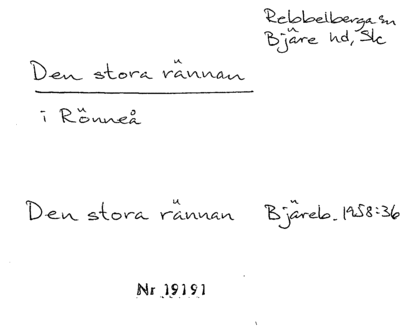 Rebbelberga sn
Bjäre hd, Sk
Den stora rännan
i Rönneå
Den stora rännan Bjäreb. 1958:36
Nr 19191